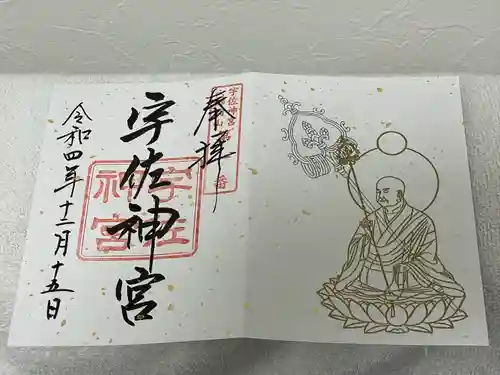 奉拝
宇佐神宮
宇佐神宮
令和四年十二月十五日